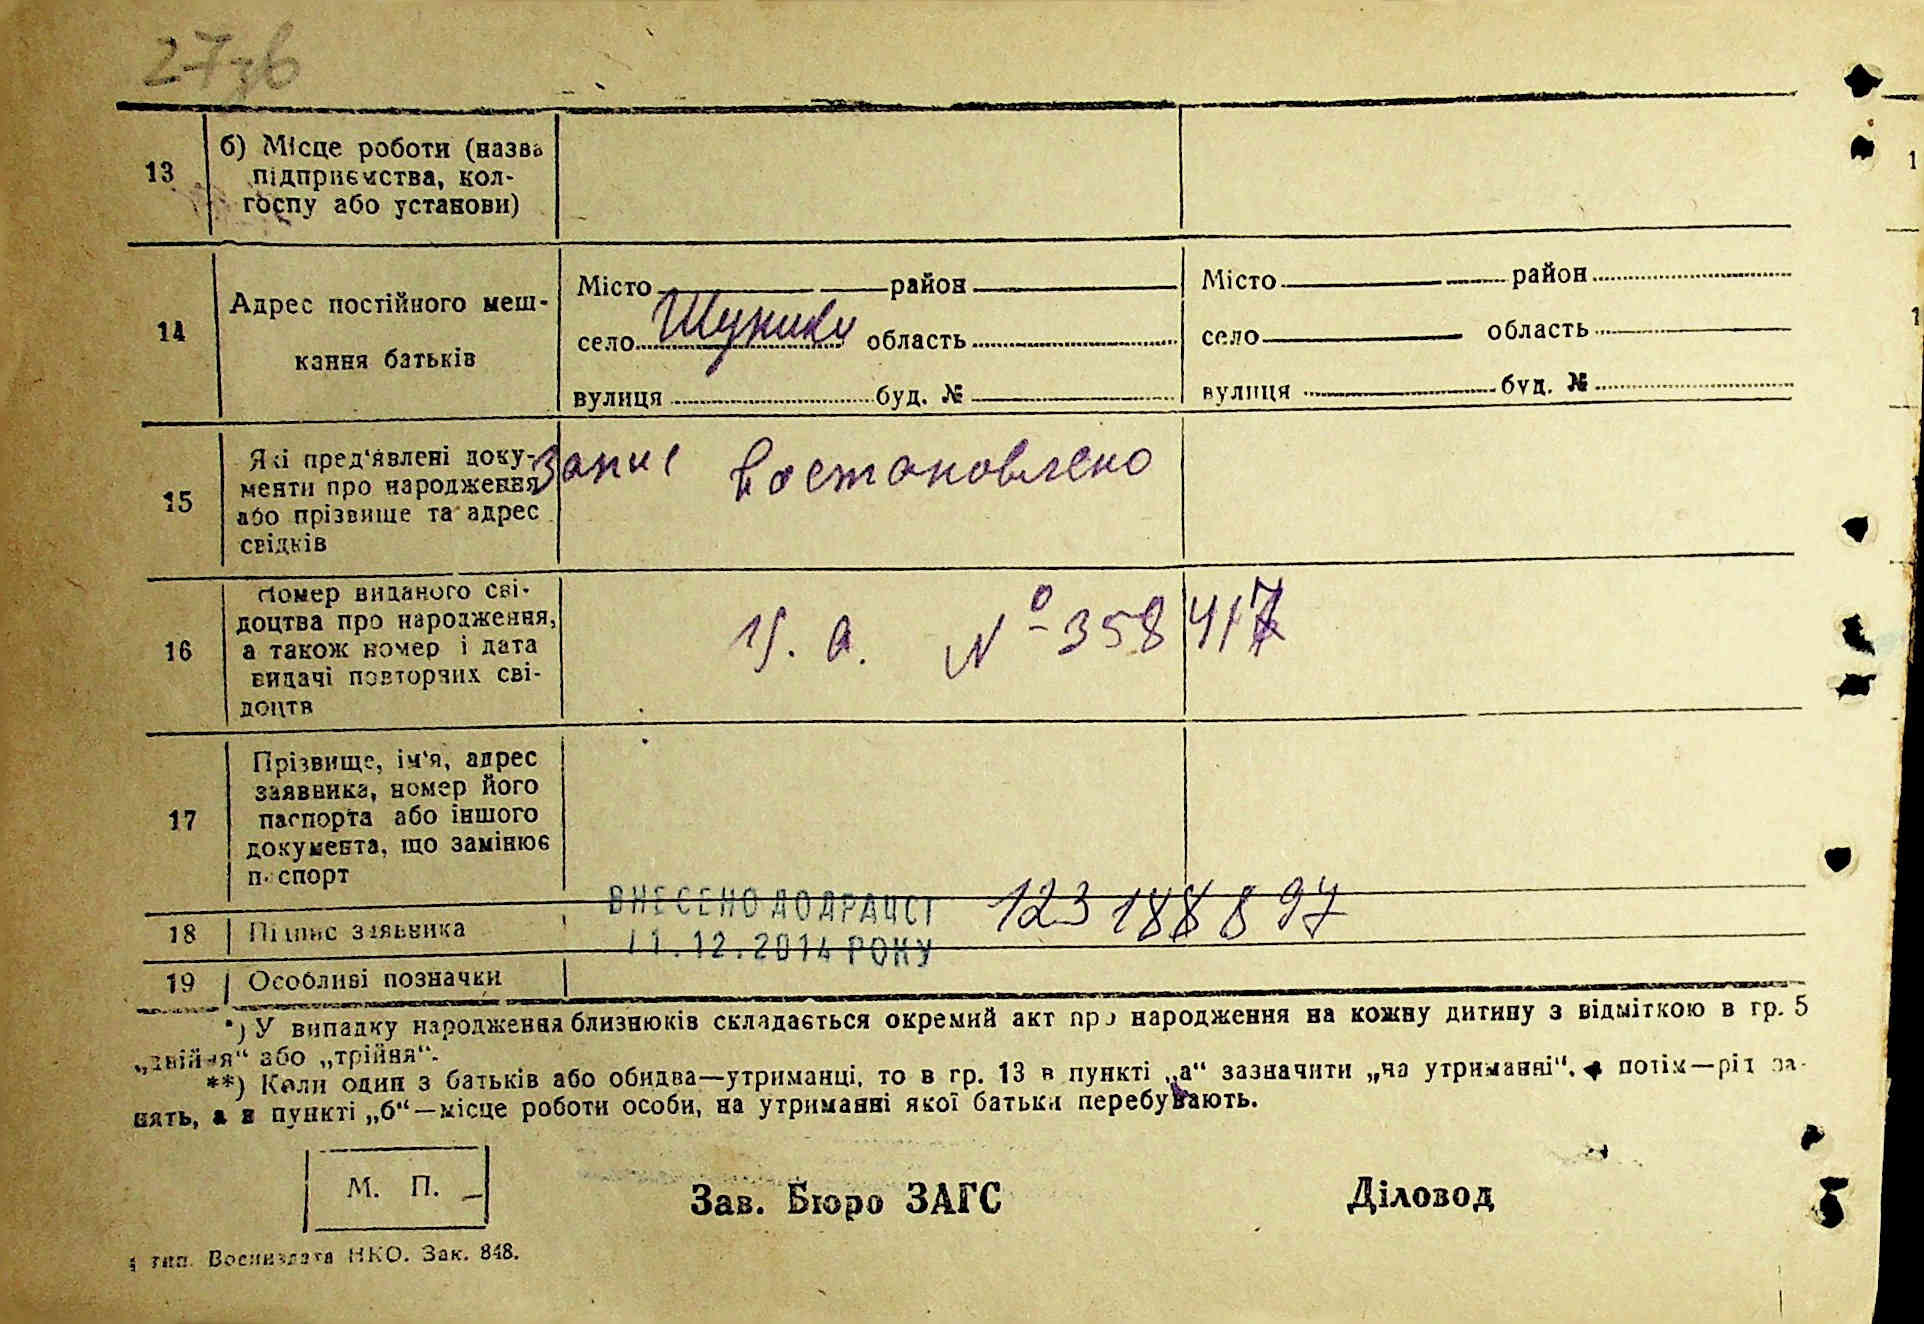 27зв
13
б) Місце роботи (назва
підприємства, кол-
госпу або установи)
14
Адрес постійного меш-
кання батьків
Місто район
село Шупики область
вулиця буд. №
Місто район
село область
вулиця буд. №
15
Які пред'явлені доку-
менти про народження
або прізвище та адрес
свідків
Запис востановлено
16
Номер виданого сві-
доцтва про народження,
а також номер і дата
видачі повторних сві-
доцтв
№ 358417
17
Прізвище, ім'я, адрес
заявника, номер його
паспорта або іншого
документа, що замінює
паспорт
18
Підпис заявника
ВНЕСЕНО ДО ДРАЦСГ
11.12.2014 РОКУ
19
Особливі позначки
*) У випадку народження близнюків складається окремий акт про народження на кожну дитину з відміткою в гр. 5
„двійня“ або „трійня“.
**) Коли один з батьків або обидва—утриманці, то в гр. 13 в пункті „а“ зазначити „на утриманні“, а потім—рід за-
нять, а в пункті „б“—місце роботи особи, на утриманні якої батьки перебувають.
М. П.
Зав. Бюро ЗАГС
Діловод
тип. Воениздата НКО. Зак. 848.